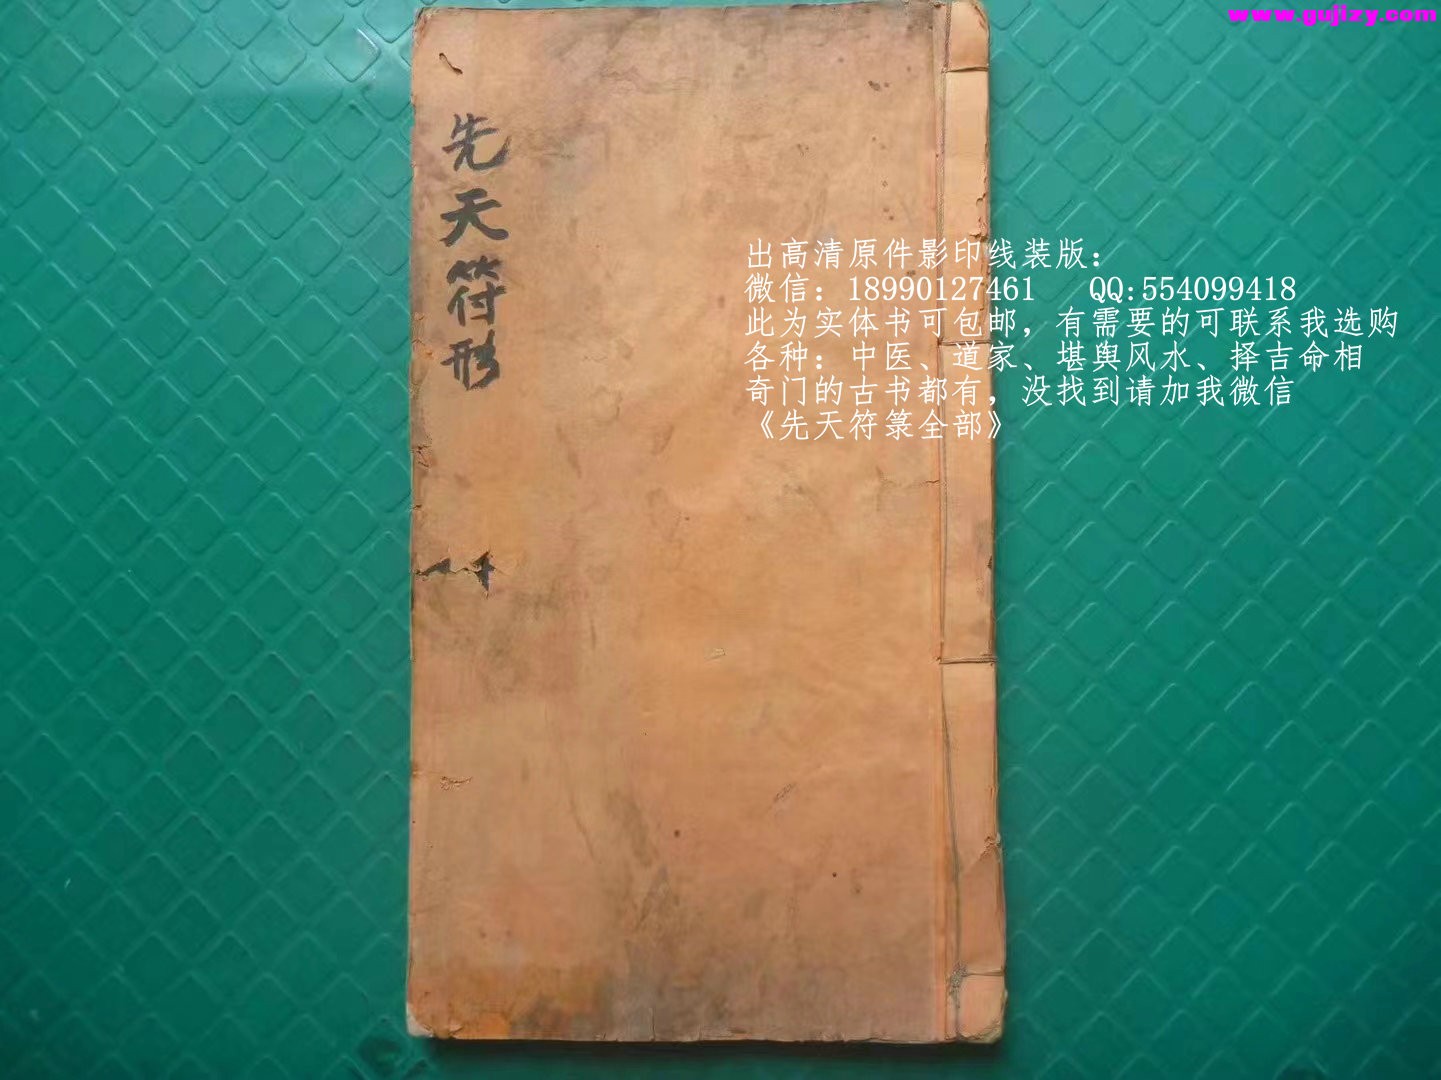 www.gujizy.com
先天符形
出高清原件影印线装版：
微信：18990127461 QQ:554099418
此为实体书可包邮，有需要的可联系我选购
各种：中医、道家、堪舆风水、择吉命相
奇门的古书都有，没找到请加我微信
《先天符箓全部》